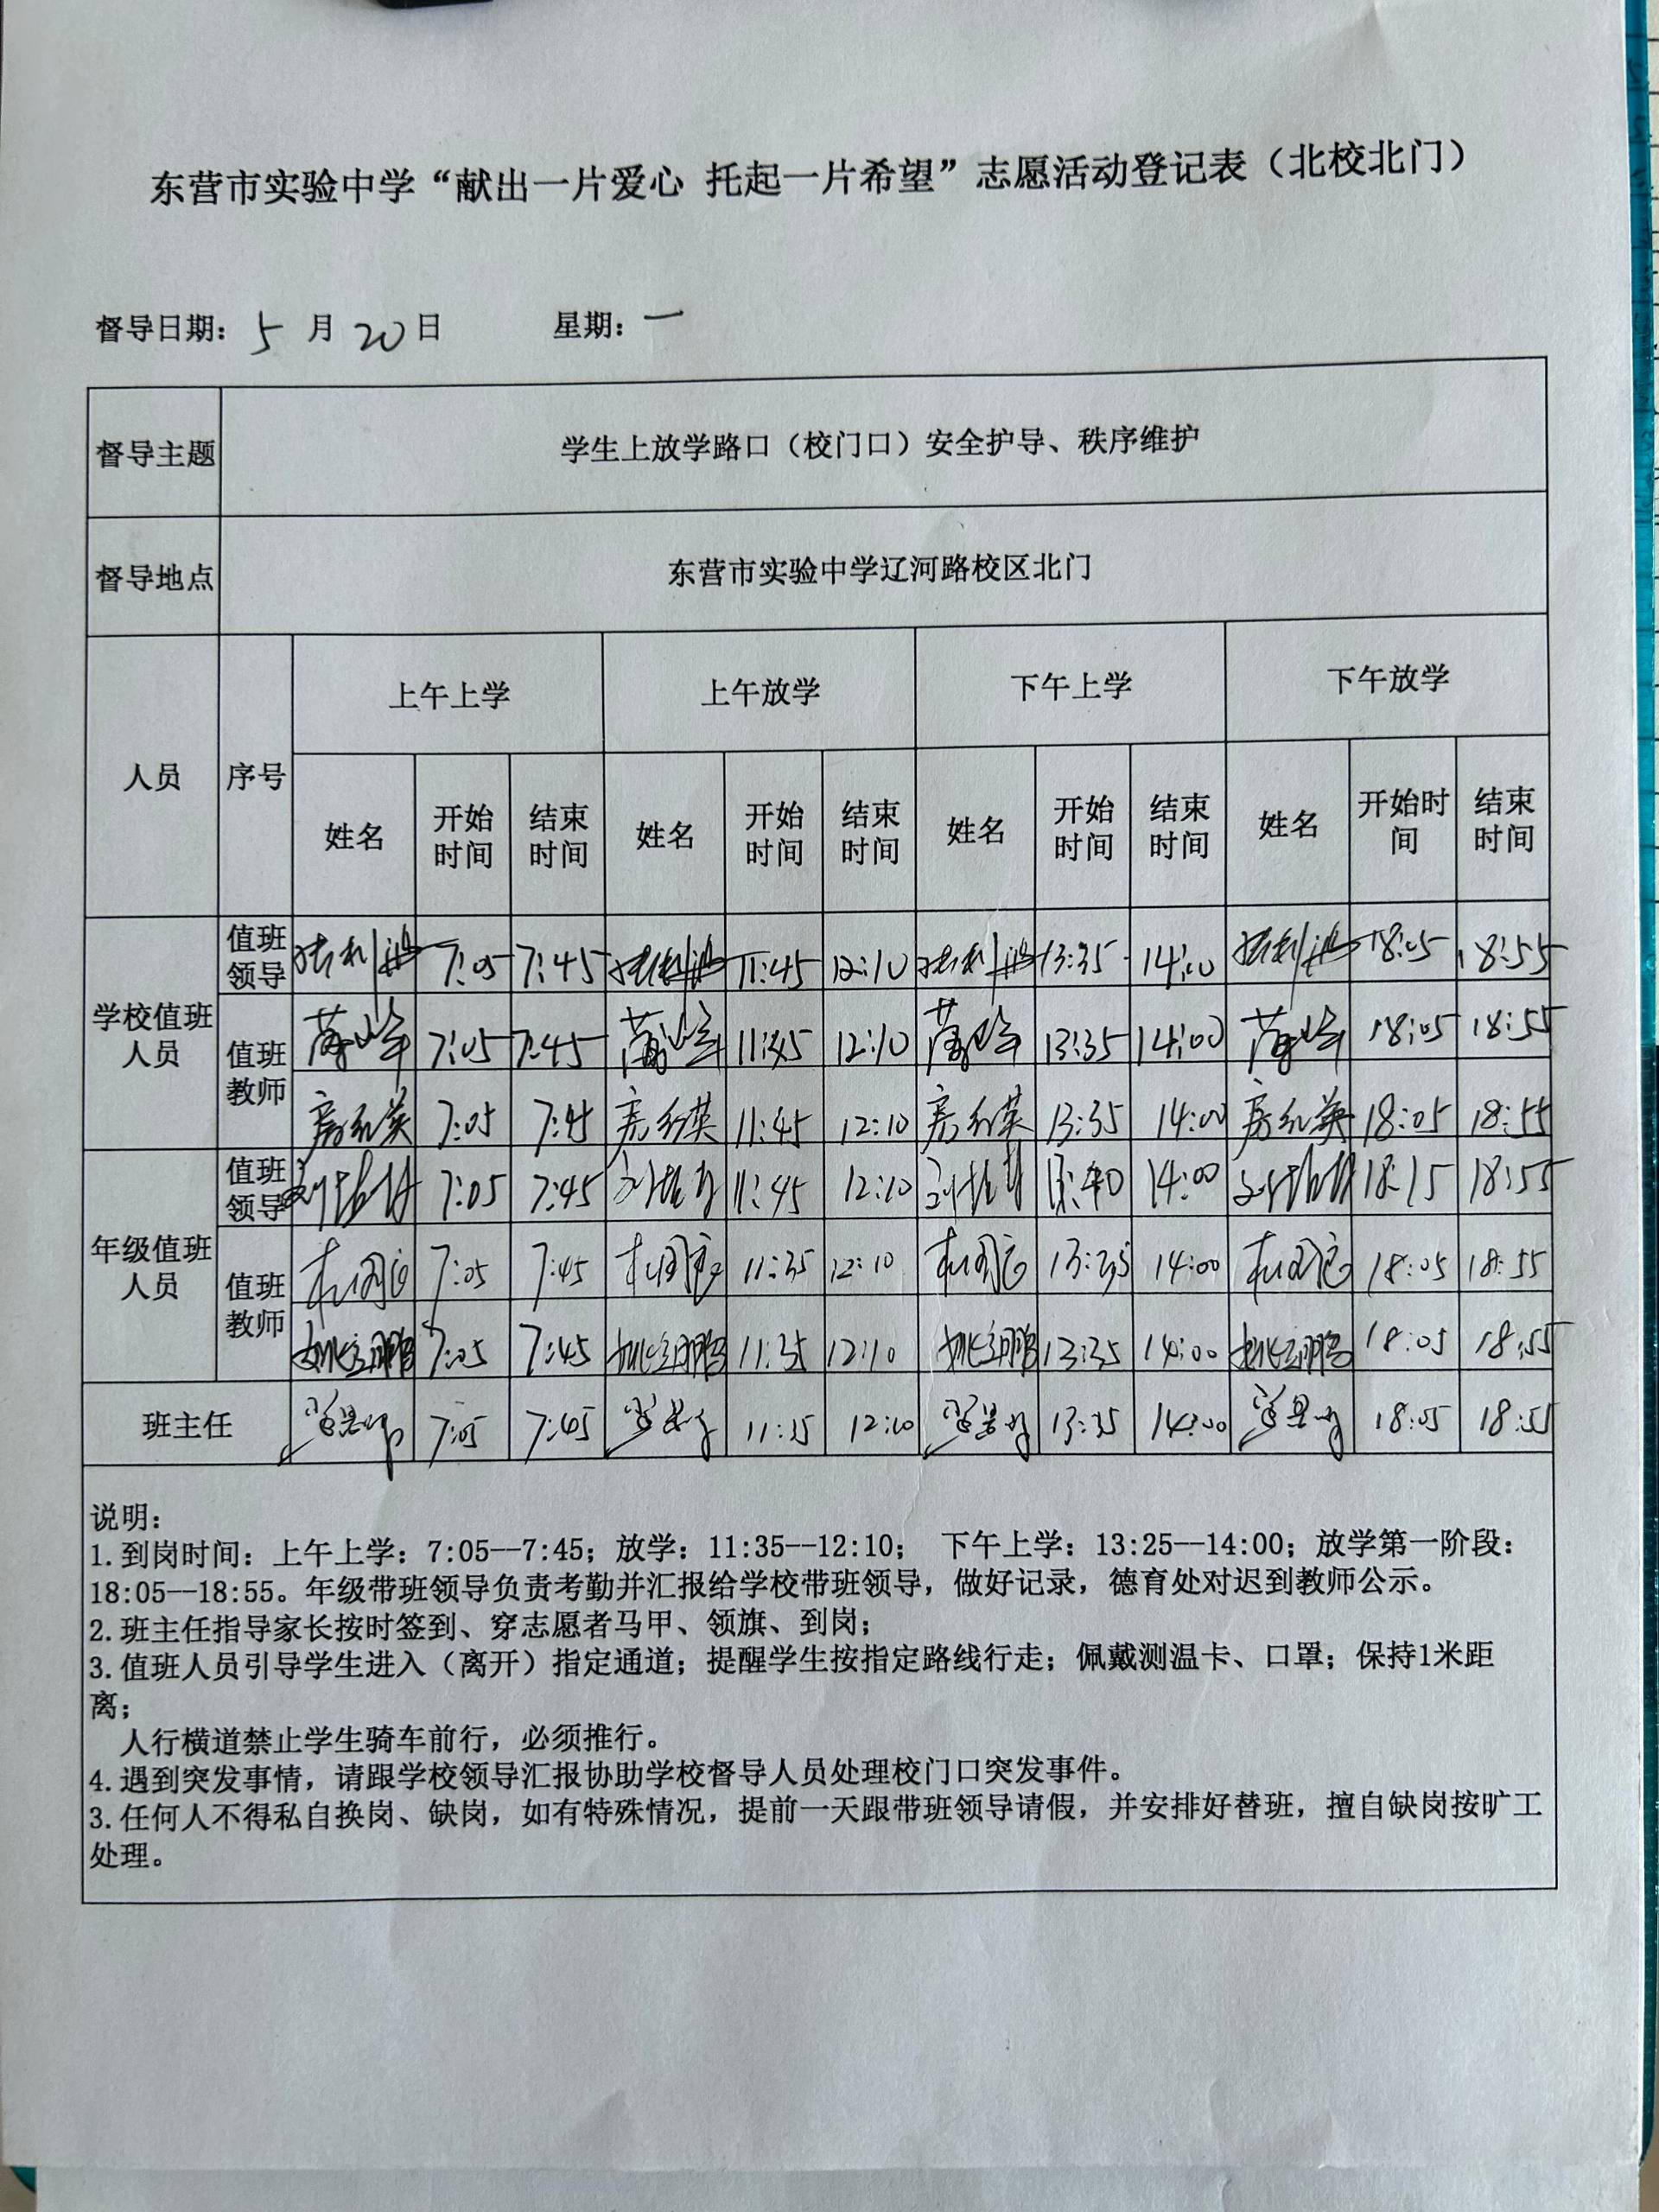 东营市实验中学“献出一片爱心 托起一片希望”志愿活动登记表（北校北门）
督导日期：5月20日 星期：一
督导主题 学生上放学路口（校门口）安全护导、秩序维护
督导地点 东营市实验中学辽河路校区北门
人员 序号 上午上学 上午放学 下午上学 下午放学
姓名 开始时间 结束时间 姓名 开始时间 结束时间 姓名 开始时间 结束时间 姓名 开始时间 结束时间
学校值班人员
值班领导 7:05 7:45 11:45 12:10 13:35 14:00 18:05 18:55
值班教师 7:05 7:45 11:45 12:10 13:35 14:00 18:05 18:55
房红英 7:05 7:45 房红英 11:45 12:10 房红英 13:35 14:00 房红英 18:05 18:55
年级值班人员
值班领导 7:05 7:45 11:45 12:10 14:00 18:15 18:55
值班教师 7:05 7:45 11:35 12:10 13:35 14:00 18:05 18:55
姚立鹏 7:05 7:45 姚立鹏 11:35 12:10 姚立鹏 13:35 14:00 姚立鹏 18:05 18:55
班主任 7:05 7:45 11:35 12:10 13:35 14:00 18:05 18:55
说明：
1.到岗时间：上午上学：7:05--7:45；放学：11:35--12:10； 下午上学：13:25--14:00；放学第一阶段：
18:05--18:55。年级带班领导负责考勤并汇报给学校带班领导，做好记录，德育处对迟到教师公示。
2.班主任指导家长按时签到、穿志愿者马甲、领旗、到岗；
3.值班人员引导学生进入（离开）指定通道；提醒学生按指定路线行走；佩戴测温卡、口罩；保持1米距
离；
人行横道禁止学生骑车前行，必须推行。
4.遇到突发事情，请跟学校领导汇报协助学校督导人员处理校门口突发事件。
3.任何人不得私自换岗、缺岗，如有特殊情况，提前一天跟带班领导请假，并安排好替班，擅自缺岗按旷工
处理。